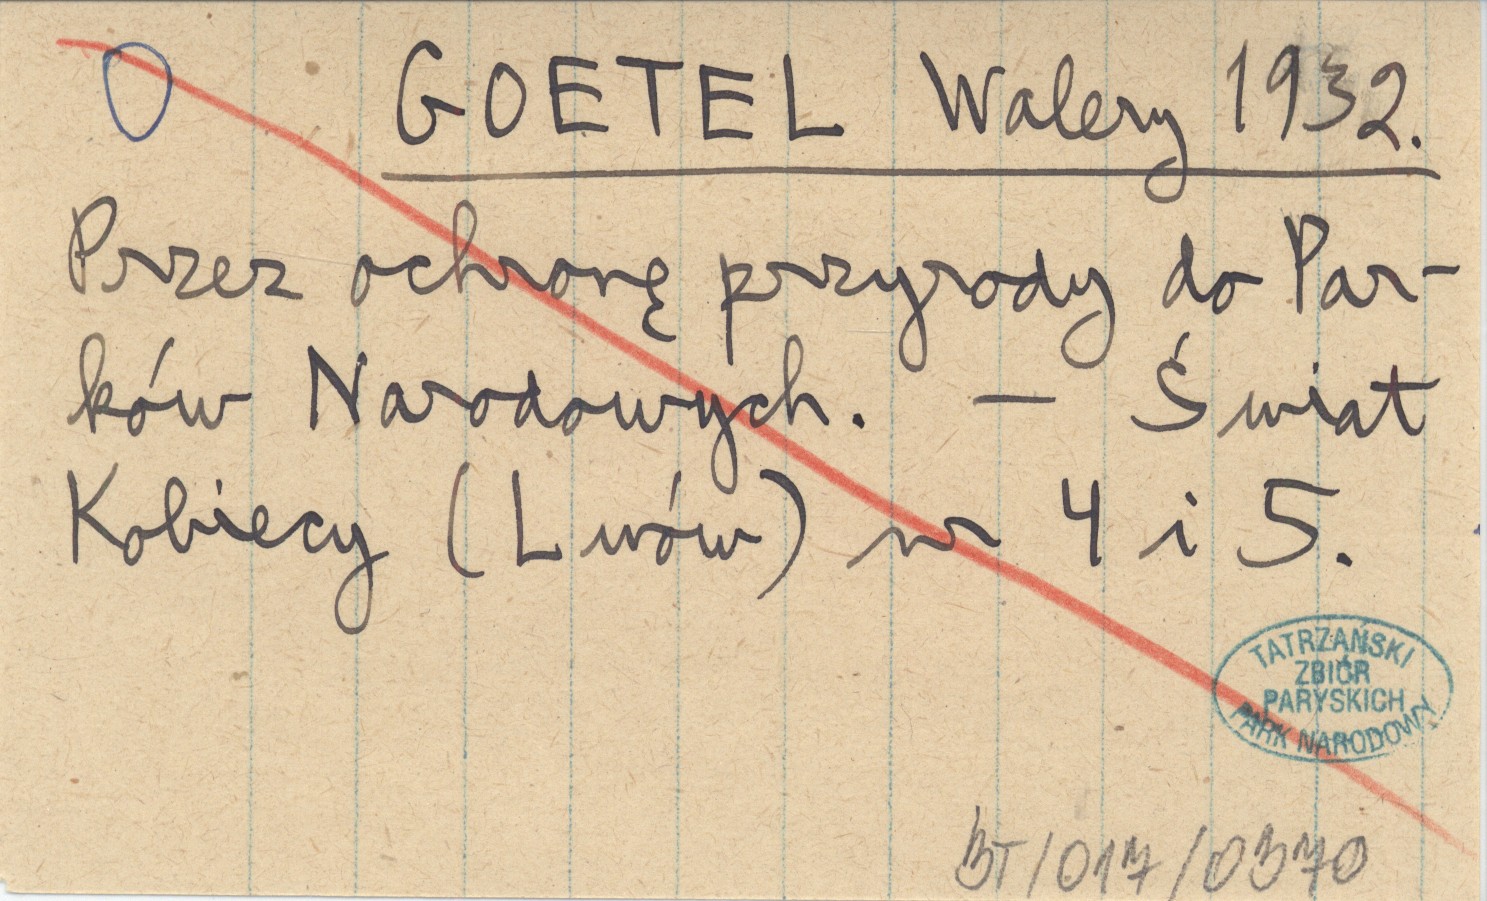 GOETEL Walery 1932.
Przez ochronę przyrody do Par-
ków Narodowych. — Świat
Kobiecy (Lwów) nr 4 i 5.
TATRZAŃSKI
ZBIÓR
PARYSKICH
PARK NARODOWY
BT/017/0370